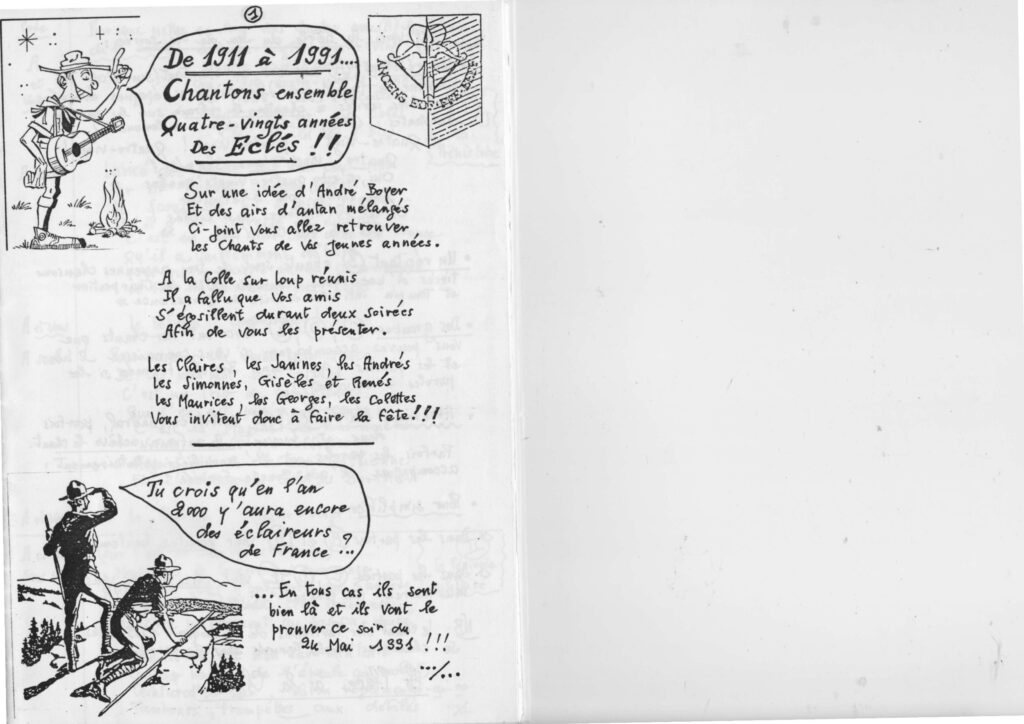 1
De 1911 à 1991...
Chantons ensemble
Quatre-vingts années
Des Eclés !!
ANCIENS EDF-FFE-EEDF
Sur une idée d'André Boyer
Et des airs d'antan mélangés
Ci-joint vous allez retrouver
les Chants de vos jeunes années.
A la Colle sur Loup réunis
Il a fallu que vos amis
S'égosillent durant deux soirées
Afin de vous les présenter.
Les Claires, les Janines, les Andrés
les Simonnes, Gisèles et Renés
les Maurices, les Georges, les Colettes
Vous invitent donc à faire la fête!!!
Tu crois qu'en l'an
2000 y'aura encore
des éclaireurs
de France ?..
... En tous cas ils sont
bien là et ils vont le
prouver ce soir du
24 Mai 1991 !!!
.../...